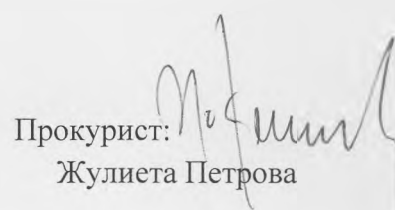 Прокурист:
Жулиета Петрова